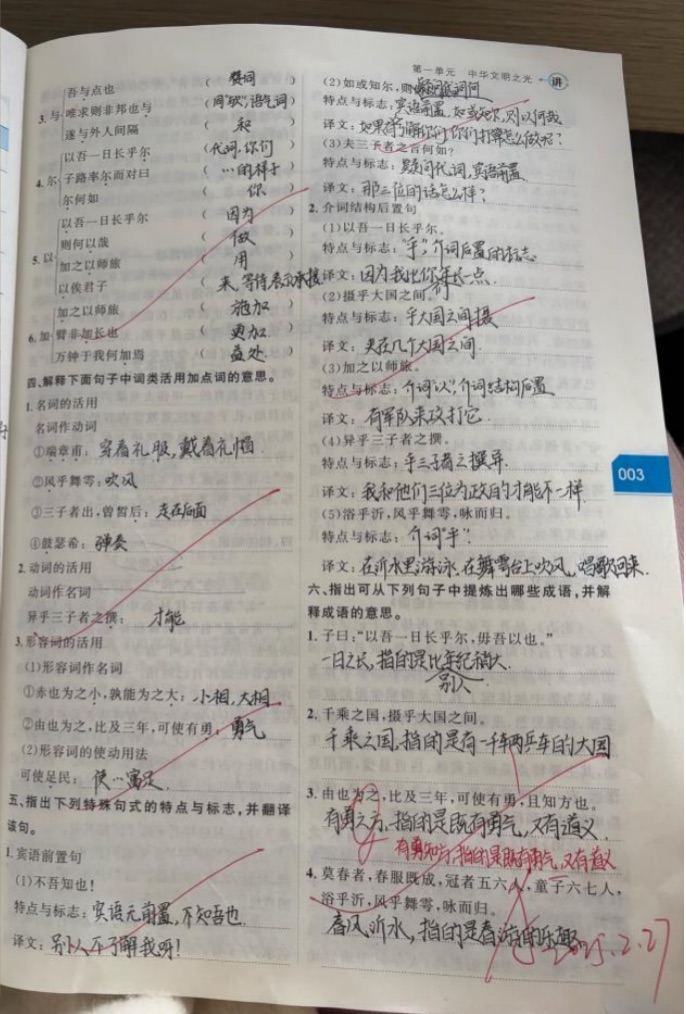 第一单元 中华文明之光 讲
吾与点也 ( 赞同 )
3.与 唯求则非邦也与 (同"欤",语气词)
遂与外人间隔 ( 和 )
以吾一日长乎尔 (代词,你们)
4.尔 子路率尔而对曰 ( …的样子 )
尔何如 ( 你 )
以吾一日长乎尔 ( 因为 )
则何以哉 ( 做 )
5.以 加之以师旅 ( 用 )
以俟君子 ( 来,等待表示承接
加之以师旅 ( 施加 )
6.加 臂非加长也 ( 更加 )
万钟于我何加焉 ( 益处 )
四、解释下面句子中词类活用加点词的意思。
1.名词的活用
名词作动词
①端章甫:穿着礼服,戴着礼帽
②风乎舞雩:吹风
③三子者出,曾皙后:走在后面
④鼓瑟希:弹奏
2.动词的活用
动词作名词
异乎三子者之撰: 才能
3.形容词的活用
(1)形容词作名词
①赤也为之小,孰能为之大:小相,大相
②由也为之,比及三年,可使有勇:勇气
(2)形容词的使动用法
可使足民: 使…富足.
五、指出下列特殊句式的特点与标志,并翻译
该句。
1.宾语前置句
(1)不吾知也!
特点与标志:宾语元前置,不知吾也.
译文:别人不了解我呀!
(2)如或知尔,则
特点与标志:宾语前置,如或知尔,则以何哉
译文:如果有了解你们,你们打算怎么做呢?
(3)夫三子者之言何如?
特点与标志:疑问代词,宾语前置.
译文:那三位的话怎么样?
2.介词结构后置句
(1)以吾一日长乎尔。
特点与标志:"乎",介词后置的标志
译文:因为我比你年长一点.
(2)摄乎大国之间。
特点与标志:乎大国之间摄
译文:夹在几个大国之间.
(3)加之以师旅。
特点与标志:介词"以",介词结构后置
译文:有军队来攻打它.
(4)异乎三子者之撰。
特点与标志:乎三子者之撰异.
译文:我和他们三位为政的才能不一样.
(5)浴乎沂,风乎舞雩,咏而归。
特点与标志:介词"乎".
译文:在沂水里游泳,在舞雩台上吹风,唱歌回来.
003
六、指出可从下列句子中提炼出哪些成语,并解
释成语的意思。
1.子曰:"以吾一日长乎尔,毋吾以也。"
一日之长,指的是比年纪稍大.
别人
2.千乘之国,摄乎大国之间。
千乘之国,指的是有一千辆兵车的大国
3.由也为之,比及三年,可使有勇,且知方也。
有勇之方,指的是既有勇气,又有道义.
有勇知方,指的是既有勇气,又有道义
4.莫春者,春服既成,冠者五六人,童子六七人,
浴乎沂,风乎舞雩,咏而归。
春风沂水,指的是春游的乐趣
2025.2.27